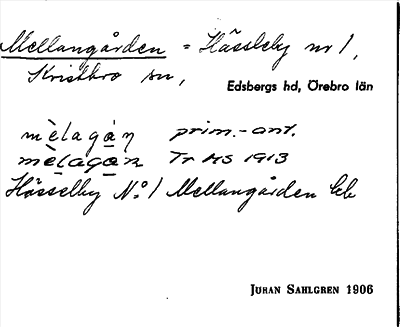 Mellangården = Hässleby nr 1,
Kristbro sn,
Edsbergs hd, Örebro län
mèlagȧṇ prim.-ant.
mèlagạṇ Tr MS 1913
Hässelby No 1 Mellangården
JUHAN SAHLGREN 1906